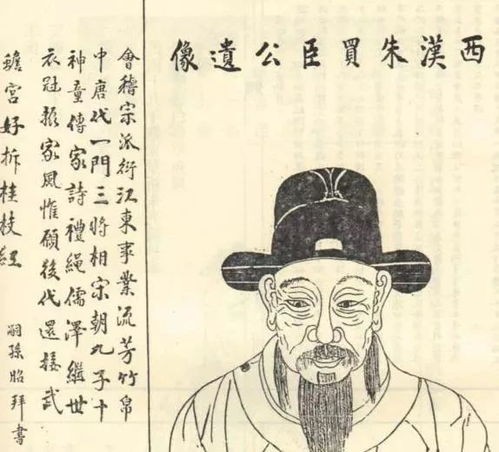 西漢朱買臣公遺像
會稽宗派衍江東事業流芳竹帛
中唐代一門三將相宗朝九子十
神童傳家詩禮繩儒澤繼世
衣冠振家風惟願後代還接武
蟾宮好折桂枝紅
嗣孫昭拜書